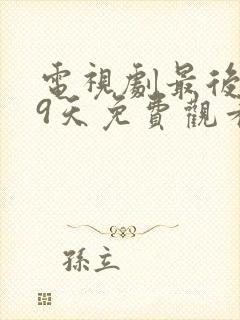 電視劇最後
9天免費觀看
孫立